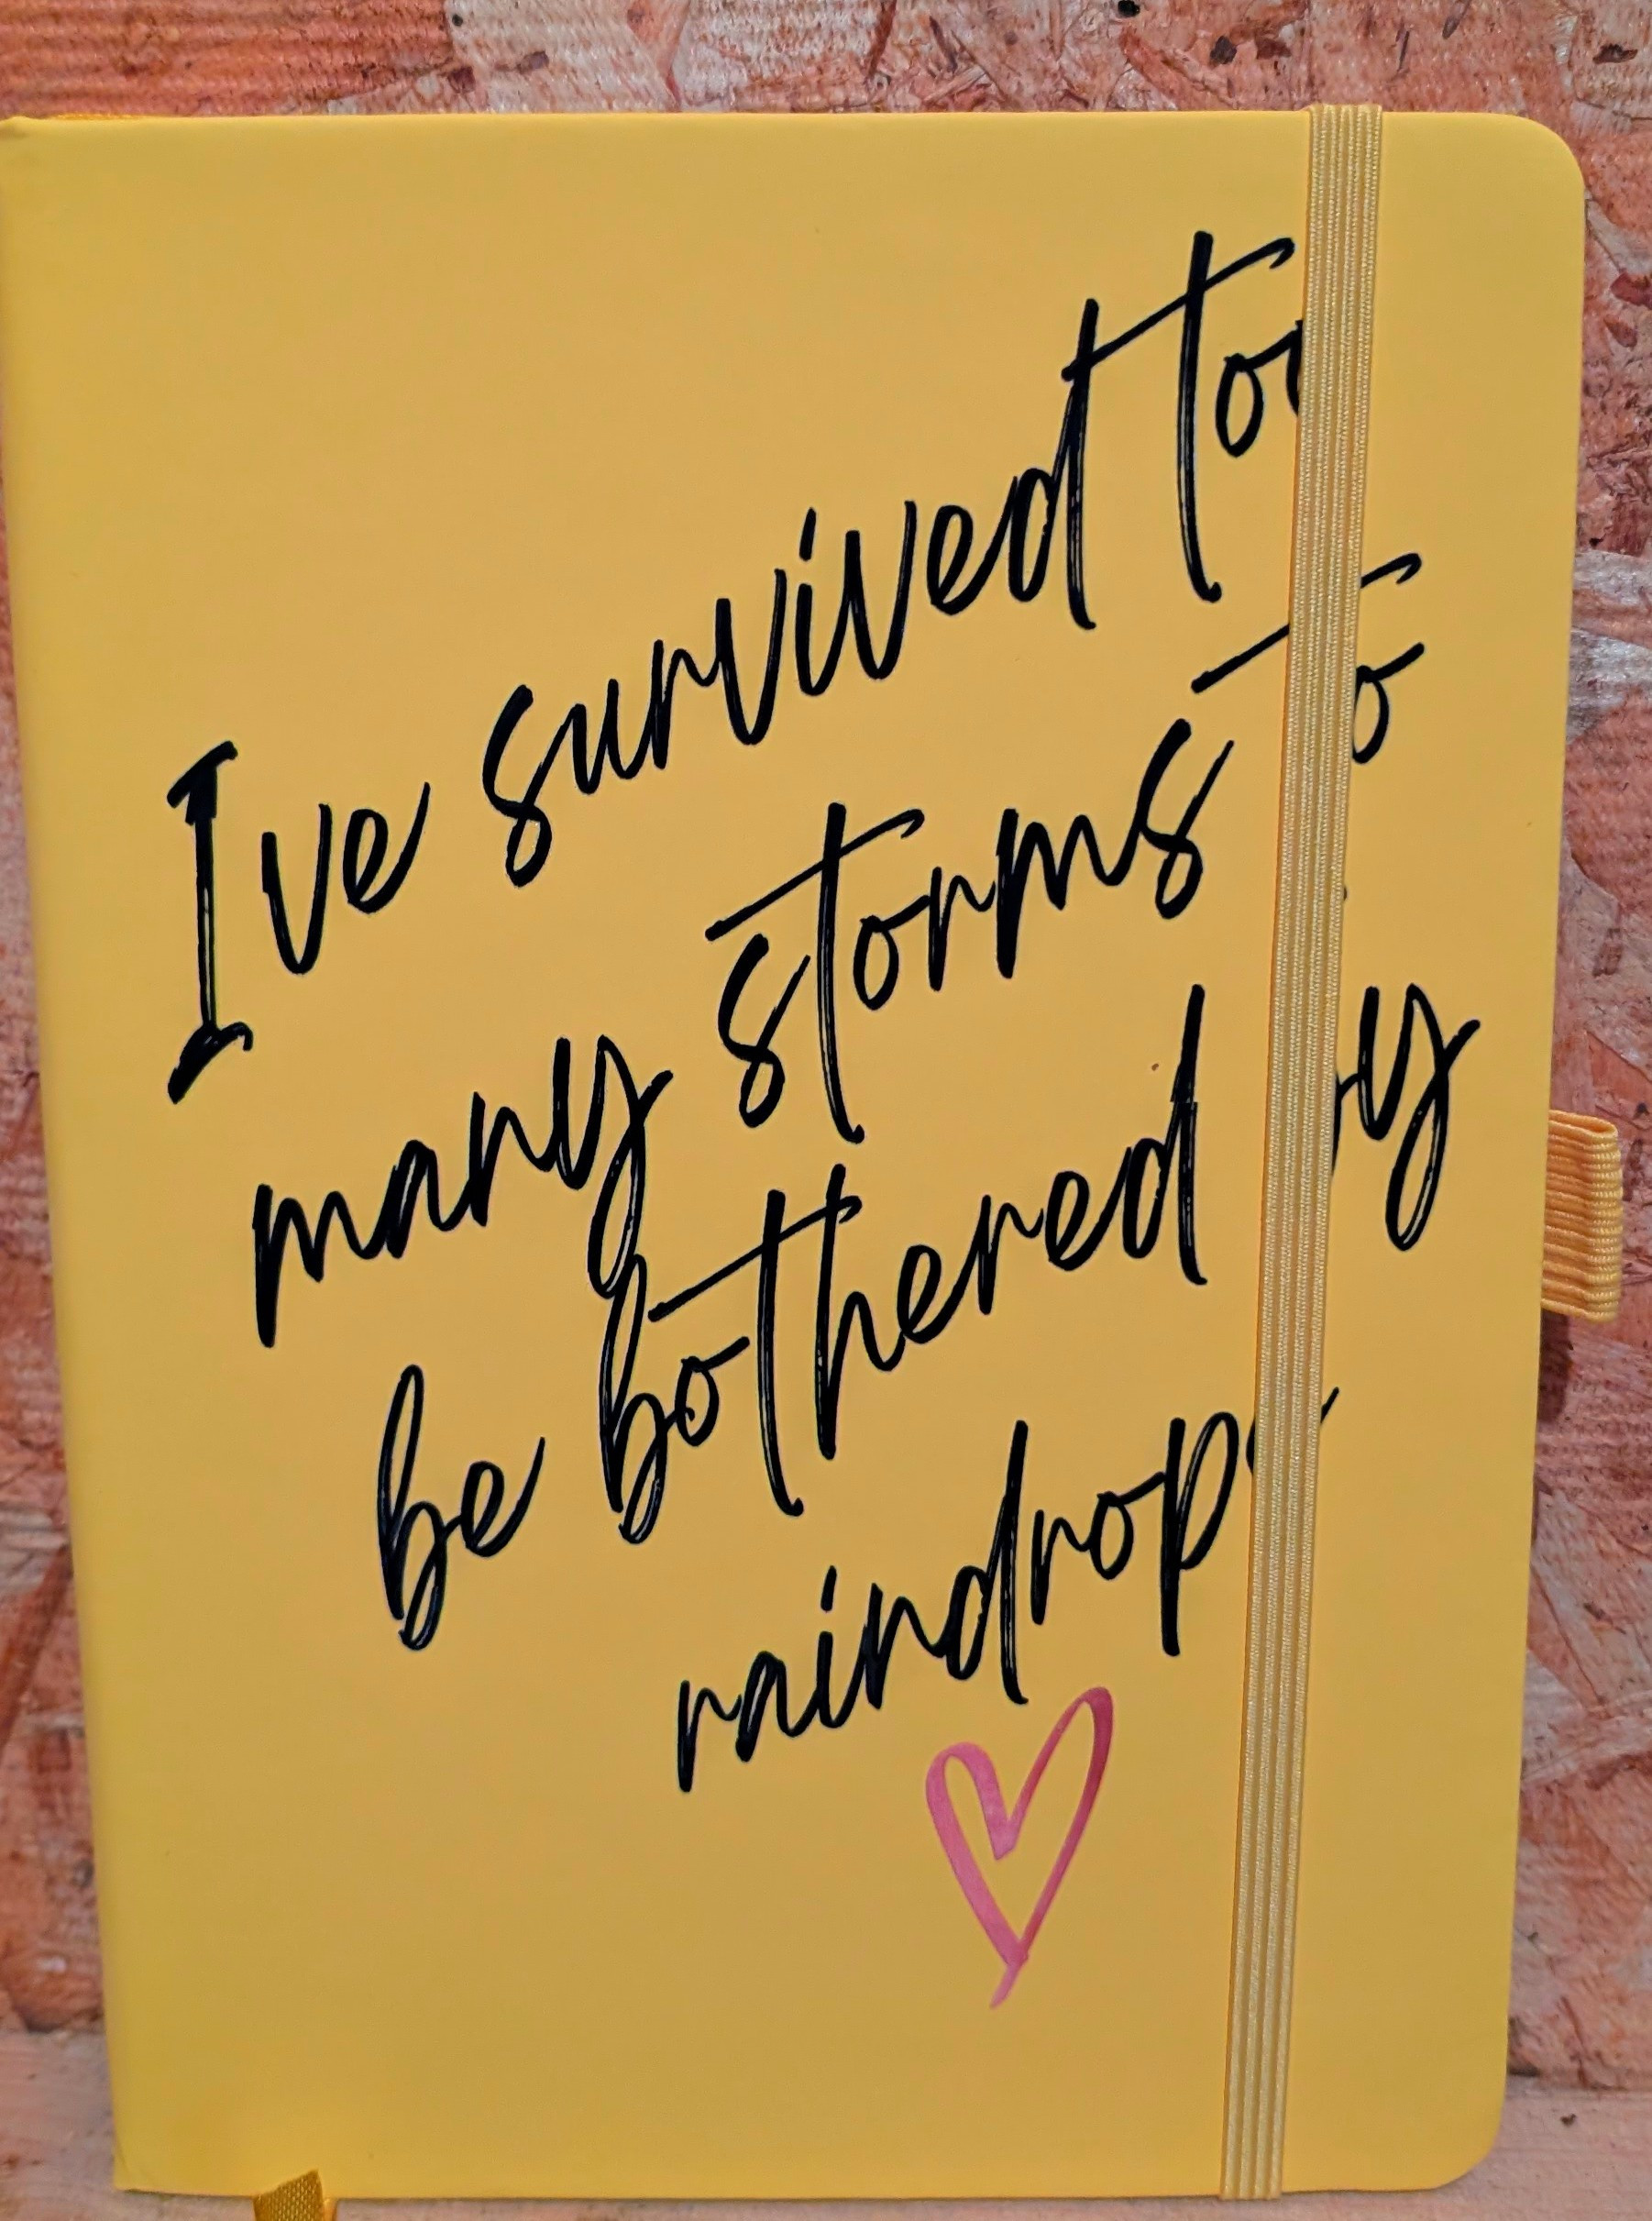 Ive survived too
many storms to
be bothered by
raindrops